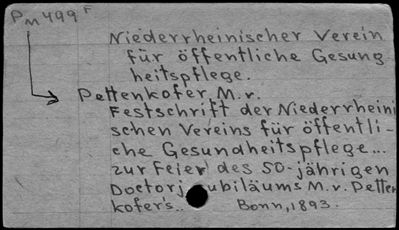 Pm499F
Niederrheinischer Verein
für öffentliche Gesund
heitspflege.
Pettenkofer, M. v.
Festschrift der Niederrheini
schen Vereins für öffentli-
che Gesundheitspflege...
zur Feier des 50-jährigen
Doctorjubiläums M. v. Petten
kofer's.. Bonn, 1893.